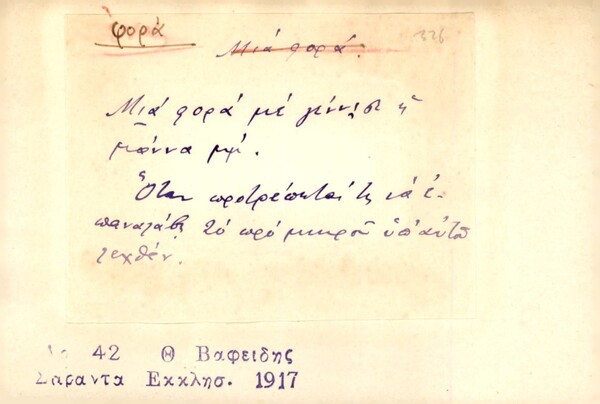 φορά
Μιά φορά. 326
Μιά φορά μέ γέννησι ἡ
μάννα μ'.
Ὅταν προτρέπεταί τις νά ἐ-
παναλάβῃ τό πρό μικροῦ ὑπ' αὐτοῦ
λεχθέν.
42 Θ Βαφειδης
Σαραντα Εκκλησ. 1917